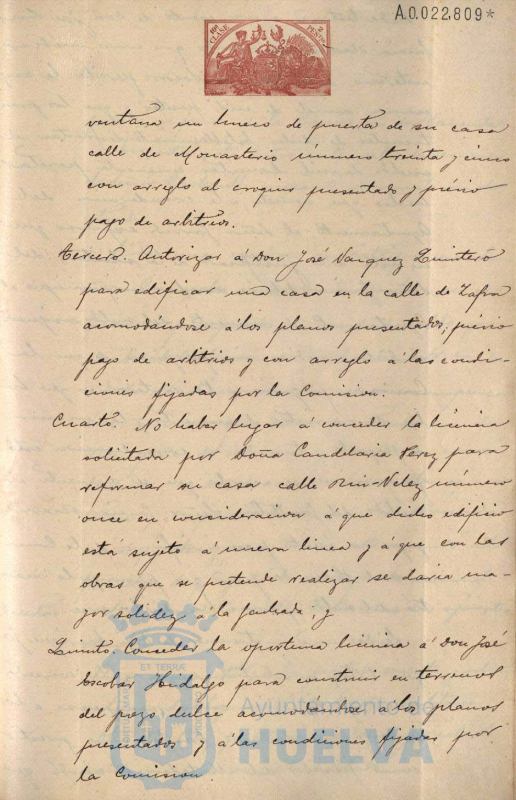 A.0.022.809*
10ª CLASE 2 PESETAS
ventana un hueco de puerta de su casa
calle de Monasterio número treinta y cinco
con arreglo al croquis presentado y prévio
pago de arbitrios.
Tercero. Autorizar á Don José Vazquez Quintero
para edificar una casa en la calle de Zafra
acomodándose á los planos presentados, prévio
pago de arbitrios y con arreglo á las condi-
ciones fijadas por la Comision.
Cuarto. No haber lugar á conceder la licencia
solicitada por Doña Candelaria Perez para
reformar su casa calle Rui-Velez número
once en consideracion á que dicho edificio
está sujeto á nueva linea y á que con las
obras que se pretende realizar se daria ma-
yor solidez á la fachada: y
Quinto. Conceder la oportuna licencia á Don José
Escobar Hidalgo para construir en terrenos
del pozo dulce acomodándose á los planos
presentados y á las condiciones fijadas por
la Comision.
ET TERRÆ
Ayuntamiento de
HUELVA